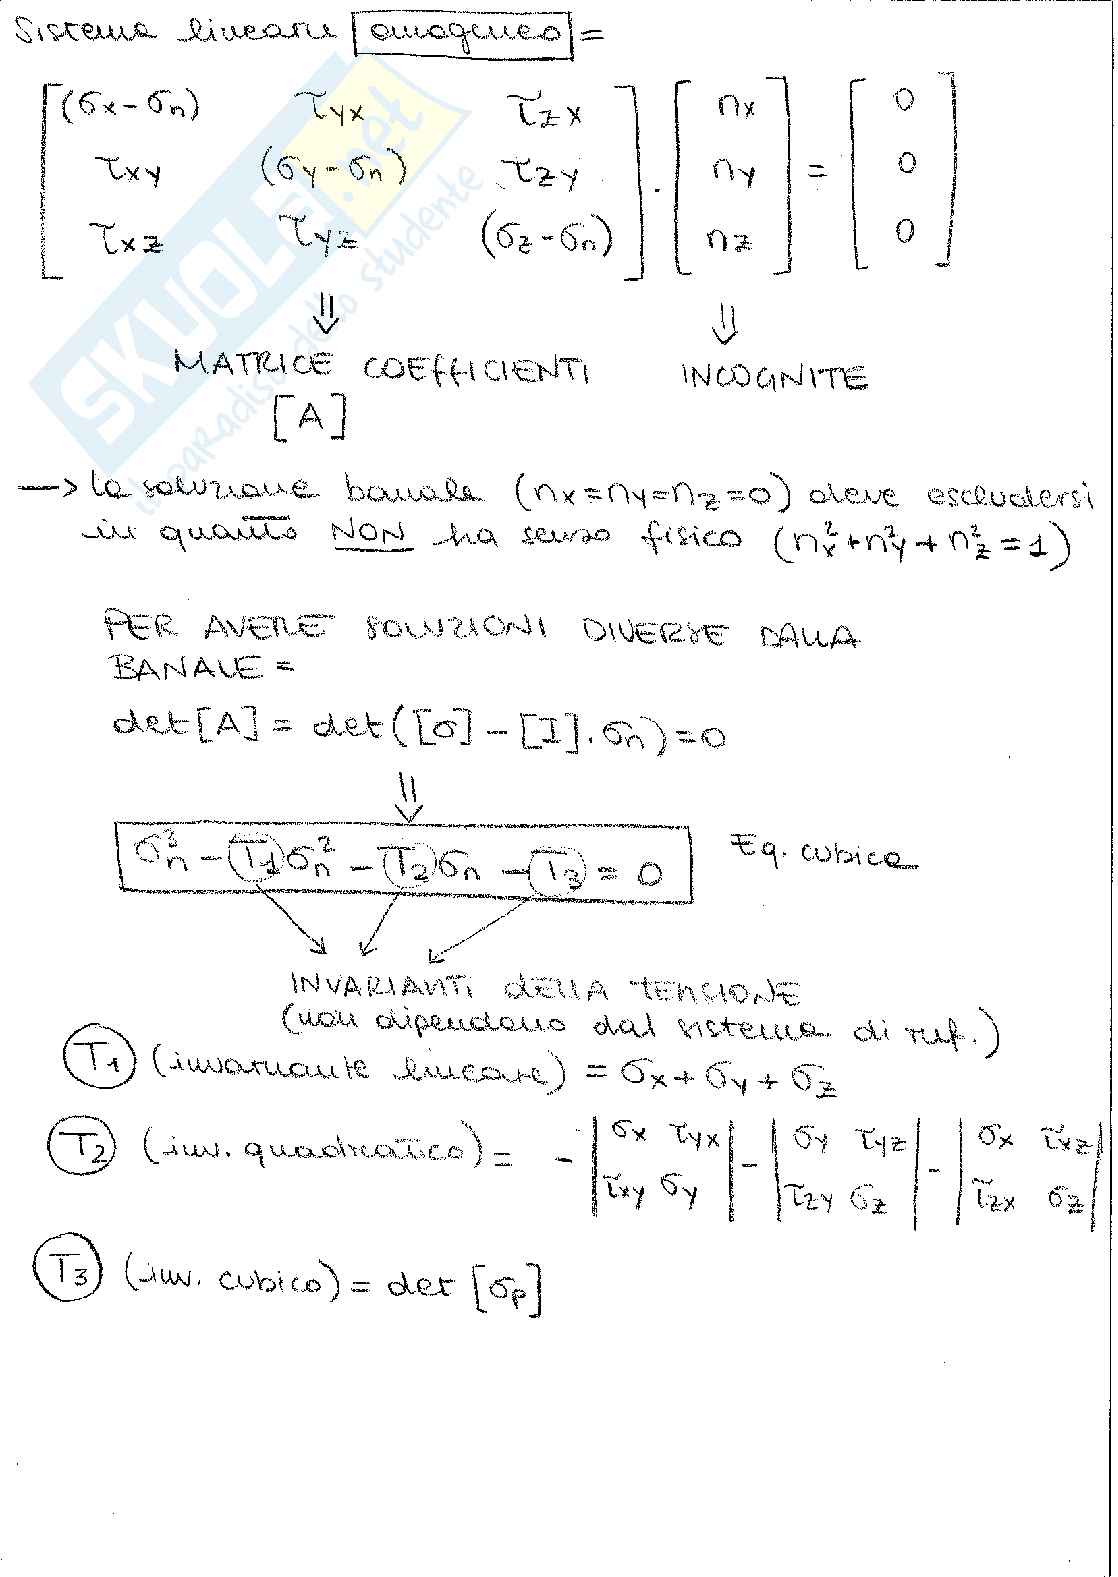 Sistema lineare omogeneo =
[ (σx-σn) τyx τzx ] [ nx ] [ 0 ]
[ τxy (σy-σn) τzy ] · [ ny ] = [ 0 ]
[ τxz τyz (σz-σn) ] [ nz ] [ 0 ]
⇓ ⇓
MATRICE COEFFICIENTI INCOGNITE
[A]
→ la soluzione banale (nx=ny=nz=0) deve escludersi
in quanto NON ha senso fisico (nx²+ny²+nz²=1)
PER AVERE SOLUZIONI DIVERSE DALLA
BANALE =
det[A] = det([σ]-[I]·σn)=0
⇓
σn³ - T1 σn² - T2 σn - T3 = 0 Eq. cubica
INVARIANTI DELLA TENSIONE
(non dipendono dal sistema di rif.)
T1 (invariante lineare) = σx+σy+σz
T2 (inv. quadratico) = - |σx τyx| - |σy τyz| - |σx τxz|
|τxy σy| |τzy σz| |τzx σz|
T3 (inv. cubico) = det [σp]
SKUOLA.net
il paradiso dello studente